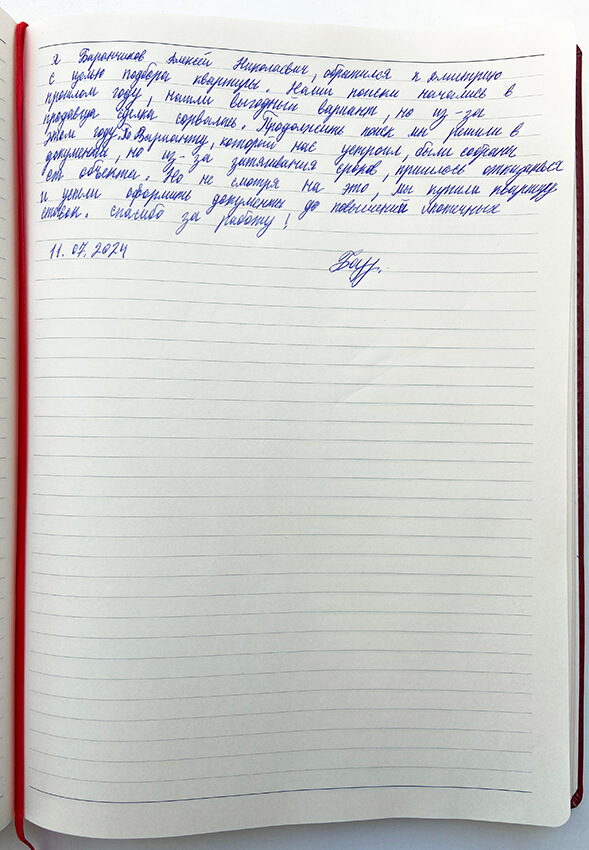 Я Баранчиков Алексей Николаевич, обратился к Дмитрию
с целью подбора квартиры. Наши поиски начались в
прошлом году, нашли выгодный вариант, но из-за
продавца сделка сорвалась. Продолжить поиск мы решили в
этом году. По Варианту, который нас устроил, были собраны
документы, но из-за затягивания сроков, пришлось отказаться
от объекта. Но не смотря на это, мы купили квартиру
и успели оформить документы до повышения ипотечных
ставок. Спасибо за работу!
11.07.2024